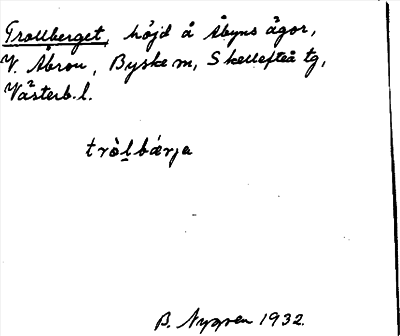 Trollberget, höjd å Åbyns ägor,
V. Åbron, Byske m, Skellefteå tg,
Västerb. l.
tròl̠bǽrja
B. Nygren 1932.